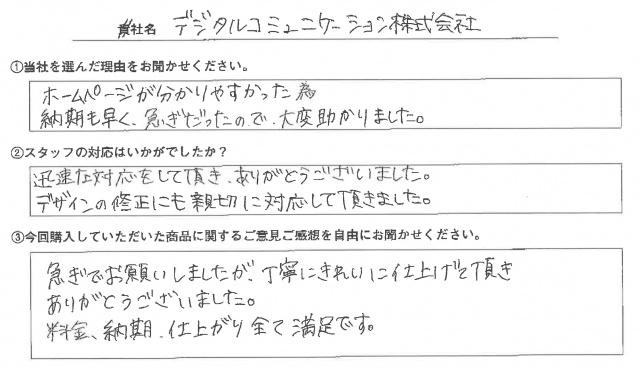 貴社名 デジタルコミュニケーション株式会社
①当社を選んだ理由をお聞かせください。
ホームページが分かりやすかった為
納期も早く、急ぎだったので、大変助かりました。
②スタッフの対応はいかがでしたか？
迅速な対応をして頂き、ありがとうございました。
デザインの修正にも親切に対応して頂きました。
③今回購入していただいた商品に関するご意見ご感想を自由にお聞かせください。
急ぎでお願いしましたが、丁寧にきれいに仕上げて頂き
ありがとうございました。
料金、納期、仕上がり全て満足です。